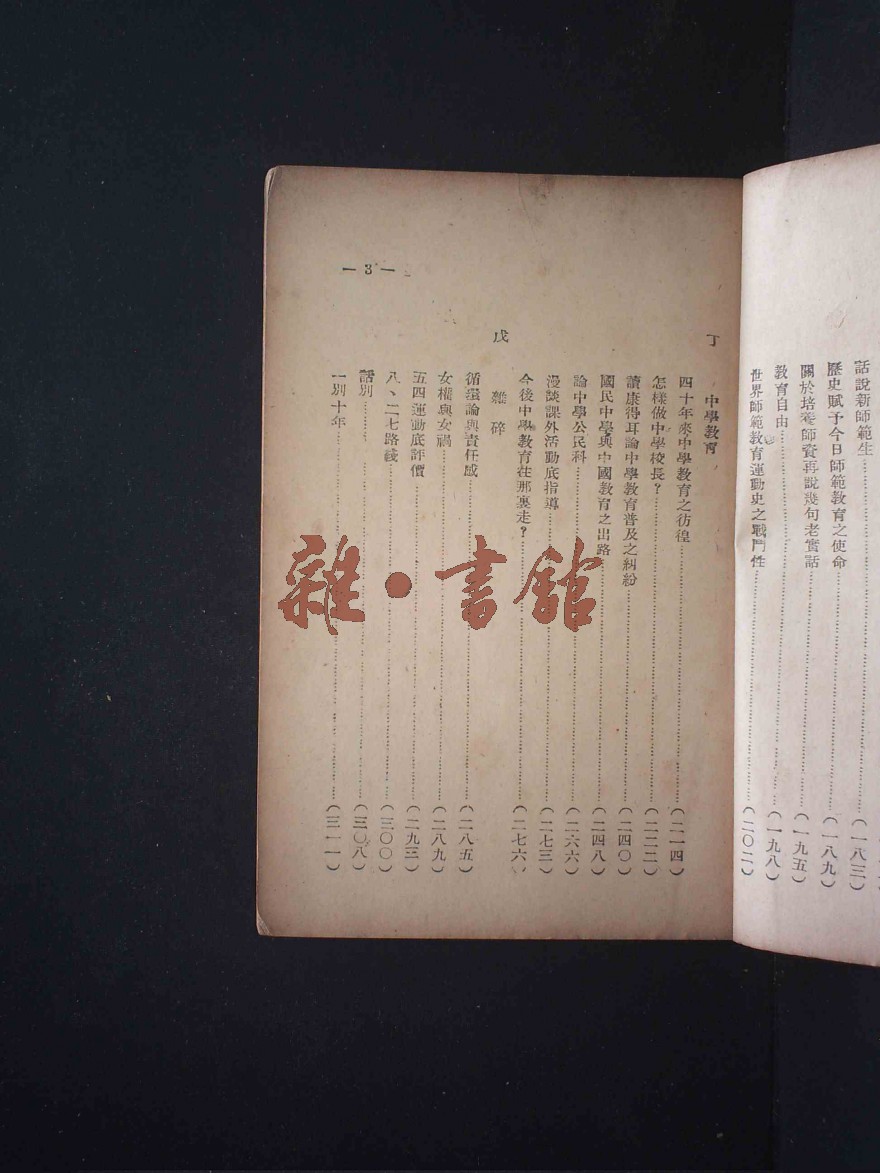 話說新師範生……(一八三)
歷史賦予今日師範教育之使命……(一八九)
關於培養師資再說幾句老實話……(一九五)
教育自由……(一九八)
世界師範教育運動史之戰鬥性……(二〇二)
丁 中學教育
四十年來中學教育之彷徨……(二一四)
怎樣做中學校長?……(二二二)
讀康得耳論中學教育普及之糾紛……(二四〇)
國民中學與中國教育之出路……(二四八)
論中學公民科……(二六六)
漫談課外活動底指導……(二七三)
今後中學教育在那裏走?……(二七六)
戊 雜碎
循環論與責任感……(二八五)
女權與女禍……(二八九)
五四運動底評價……(二九三)
八、二七路綫……(三〇〇)
話別……(三〇八)
一別十年……(三一一)
— 3 —
雜·書館